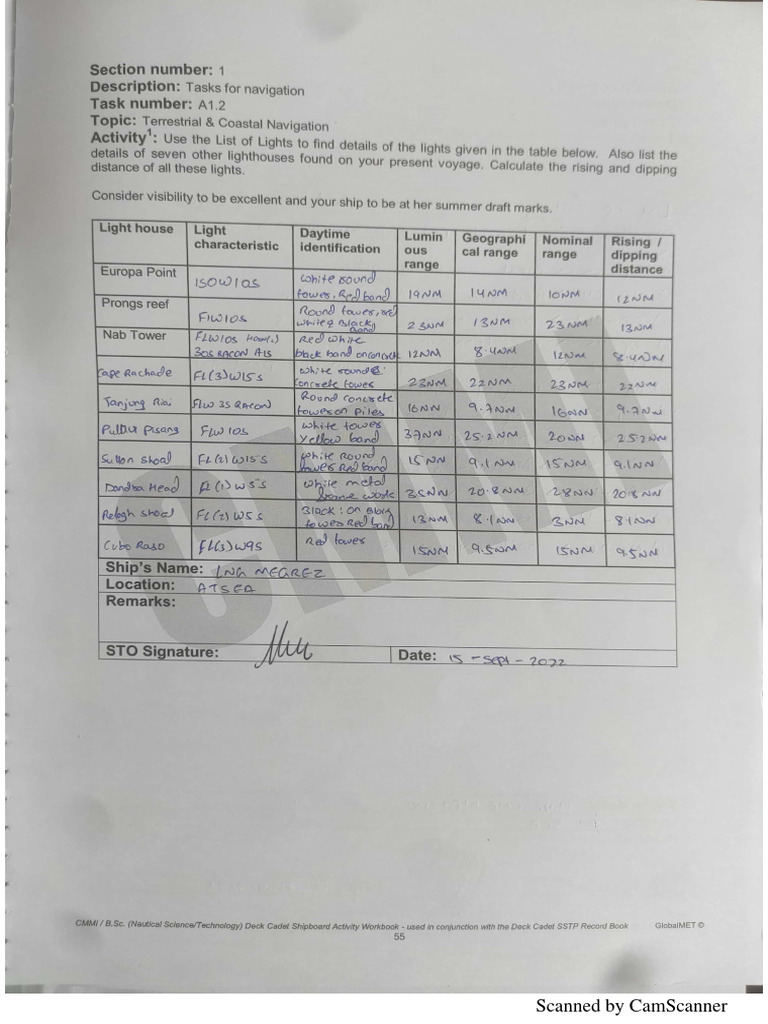 Section number: 1
Description: Tasks for navigation
Task number: A1.2
Topic: Terrestrial & Coastal Navigation
Activity1: Use the List of Lights to find details of the lights given in the table below. Also list the
details of seven other lighthouses found on your present voyage. Calculate the rising and dipping
distance of all these lights.
Consider visibility to be excellent and your ship to be at her summer draft marks.
Light house Light characteristic Daytime identification Lumin ous range Geographi cal range Nominal range Rising / dipping distance
Europa Point ISOW10S White round tower, Red band 19NM 14NM 10NM 12NM
Prongs reef F1W10S Round tower, red white & Black Band 23NM 13NM 23NM 13NM
Nab Tower FLW10S 30S RACON AIS Red white black band on concrete 12NM 8.4NM 12NM 8.4NM
Cape Rachade FL(3)W15S White round concrete tower 23NM 22NM 23NM 22NM
Tanjung Riai FLW 3S RACON Round concrete tower on Piles 16NN 9.7NM 16NN 9.7NM
Pulau Pisang FLW 10S White tower yellow band 37NN 25.2NM 20NN 25.2NN
Sutton shoal FL(2)W15S White Round tower Red band 15NN 9.1NM 15NM 9.1NN
Dondra Head FL(1)W5S White metal work 35NN 20.8NM 28NN 20.8NN
FL(2)W5S Black: on tower Red band 13NM 8.1NN 3NM 8.1NN
Cubo Raso FL(3)W9S Red tower 15NM 9.5NM 15NM 9.5NN
Ship's Name: LNG MEGREZ
Location: ATSEA
Remarks:
STO Signature: Date: 15 - Sept - 2022
CMMI / B.Sc. (Nautical Science/Technology) Deck Cadet Shipboard Activity Workbook - used in conjunction with the Deck Cadet SSTP Record Book GlobalMET ©
55
CMMI
Scanned by CamScanner